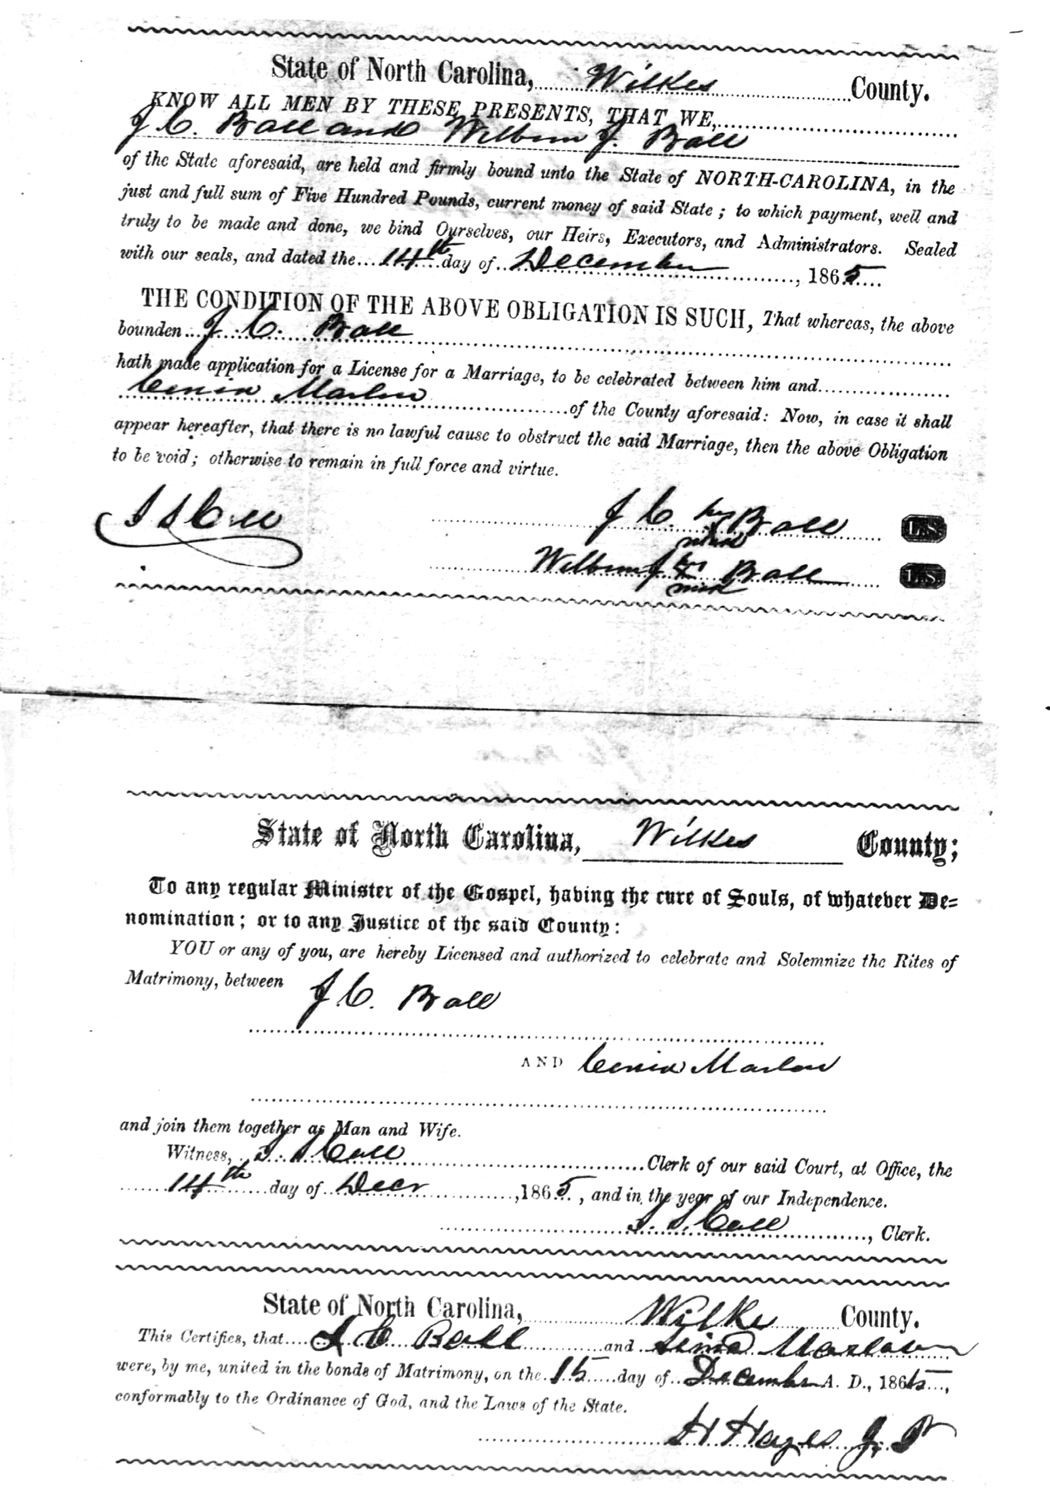 State of North Carolina, Wilkes County.
KNOW ALL MEN BY THESE PRESENTS, THAT WE,
J C. Ball and Wilburn J. Ball
of the State aforesaid, are held and firmly bound unto the State of NORTH-CAROLINA, in the
just and full sum of Five Hundred Pounds, current money of said State; to which payment, well and
truly to be made and done, we bind Ourselves, our Heirs, Executors, and Administrators. Sealed
with our seals, and dated the 14th day of December, 1865
THE CONDITION OF THE ABOVE OBLIGATION IS SUCH, That whereas, the above
bounden J C. Ball
hath made application for a License for a Marriage, to be celebrated between him and
Cenia Marlow
of the County aforesaid: Now, in case it shall
appear hereafter, that there is no lawful cause to obstruct the said Marriage, then the above Obligation
to be void; otherwise to remain in full force and virtue.
J C his Ball L.S.
mark
J S Call
Wilburn J his X Ball L.S.
mark
State of North Carolina, Wilkes County;
To any regular Minister of the Gospel, having the cure of Souls, of whatever De=
nomination; or to any Justice of the said County:
YOU or any of you, are hereby Licensed and authorized to celebrate and Solemnize the Rites of
Matrimony, between
J C. Ball
AND Cenia Marlow
and join them together as Man and Wife.
Witness, J S Call Clerk of our said Court, at Office, the
14th day of Decr, 1865, and in the year of our Independence.
J S Call, Clerk.
State of North Carolina, Wilks County.
This Certifies, that J C Ball and Sina Marlow
were, by me, united in the bonds of Matrimony, on the 15 day of December A. D., 1865,
conformably to the Ordinance of God, and the Laws of the State.
H Hayes J. P